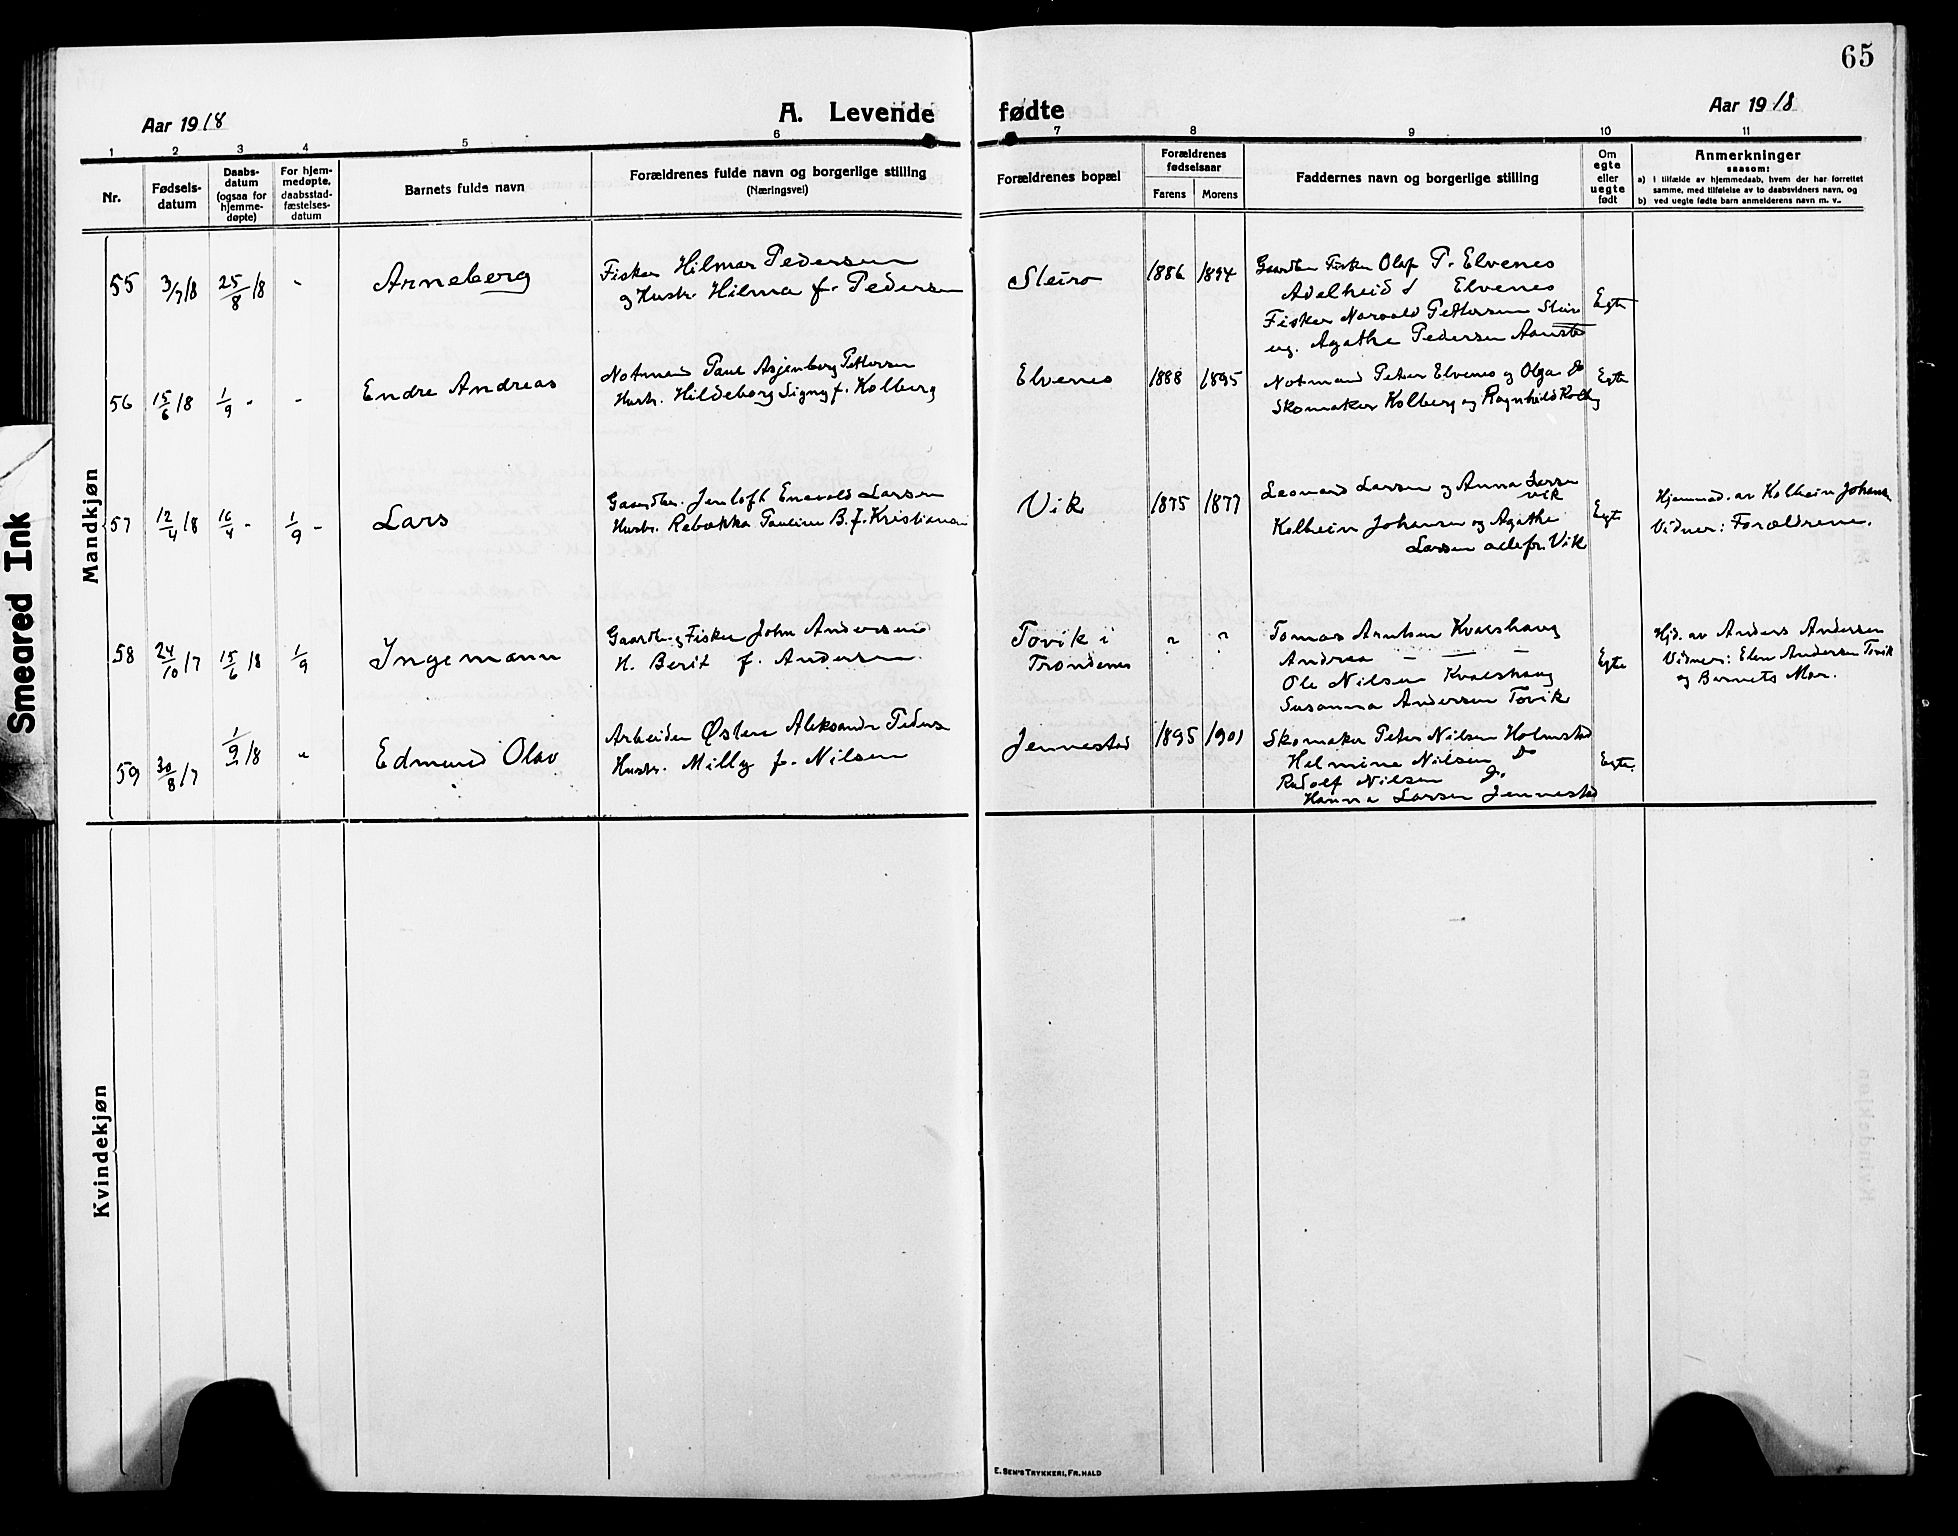 65
Aar 1918
A. Levende fødte
Aar 1918
1 2 3 4 5 6 7 8 9 10 11
Nr.
Fødsels-
datum
Daabs-
datum
(ogsaa for
hjemme-
døpte)
For hjem-
medøpte,
daabsstad-
fæstelses-
datum
Barnets fulde navn
Forældrenes fulde navn og borgerlige stilling
(Næringsvei)
Forældrenes bopæl
Forældrenes
fødselsaar
Farens Morens
Faddernes navn og borgerlige stilling
Om
egte
eller
uegte
født
Anmerkninger
saasom:
a) i tilfælde av hjemmedaab, hvem der har forrettet
samme, med tilføielse av to daabsvidners navn, og
b) ved uegte fødte barn anmelderens navn m. v..
Mandkjøn
55 3/7 18 25/8 18 "
Arneberg
Fisker Hilmar Pedersen
og Hustr. Hilma f. Pedersen
Steiro
1886 1894
Gaardbr Fisker Olaf P. Elvenes
Adelheid Elvenes
Fisker Norvald Pettersen
ug. Agathe Pedersen
Egte
56 15/6 18 1/9 " "
Endre Andreas
Notmand Paul Asjenberg Pettersen
Hustr. Hildeborg Signy f. Kolberg
Elvenes
1888 1895
Notmand Peter Elvenes og Olga do
Skomaker Kolberg og Ragnhild Kolbg
Egte
57 12/4 18 16/4 - 1/9 -
Lars
Gaardbr. Jenloft Enevold Larsen
Hustr. Rebekka Pauline B. f. Kristiansen
Vik
1875 1877
Leonard Larsen og Anna Larsen
Vik
Kolbein Johansen og Agathe
Larsen alle fr. Vik
Egte
Hjemmed. av Kolbein Johans
Vidner: Forældrene.
58 24/10 17 15/6 18 1/9
Ingemann
Gaardbr. og Fisker John Andersen
H. Berit f. Andersen
Tovik i
Trondenes
" "
Tomas Arntsen Kvæshaug
Andrea - - -
Ole Nilsen Kvæshaug
Susanna Andersen Tovik
Egte
Hjd. av Anders Andersen
Vidner: Elen Andersen Tovik
og Barnets Mor.
59 30/8 17 1/9 18 "
Edmund Olav
Arbeider Østen Aleksander Peders
Hustr. Milly f. Nilsen
Jennestad
1895 1901
Skomaker Peter Nilsen Holmstad
Helmine Nilsen do
Rudolf Nilsen do
Hanna Larsen Jennestad
Egte.
Kvindekjøn
Smeared Ink
E. SEM'S TRYKKERI, FR.HALD